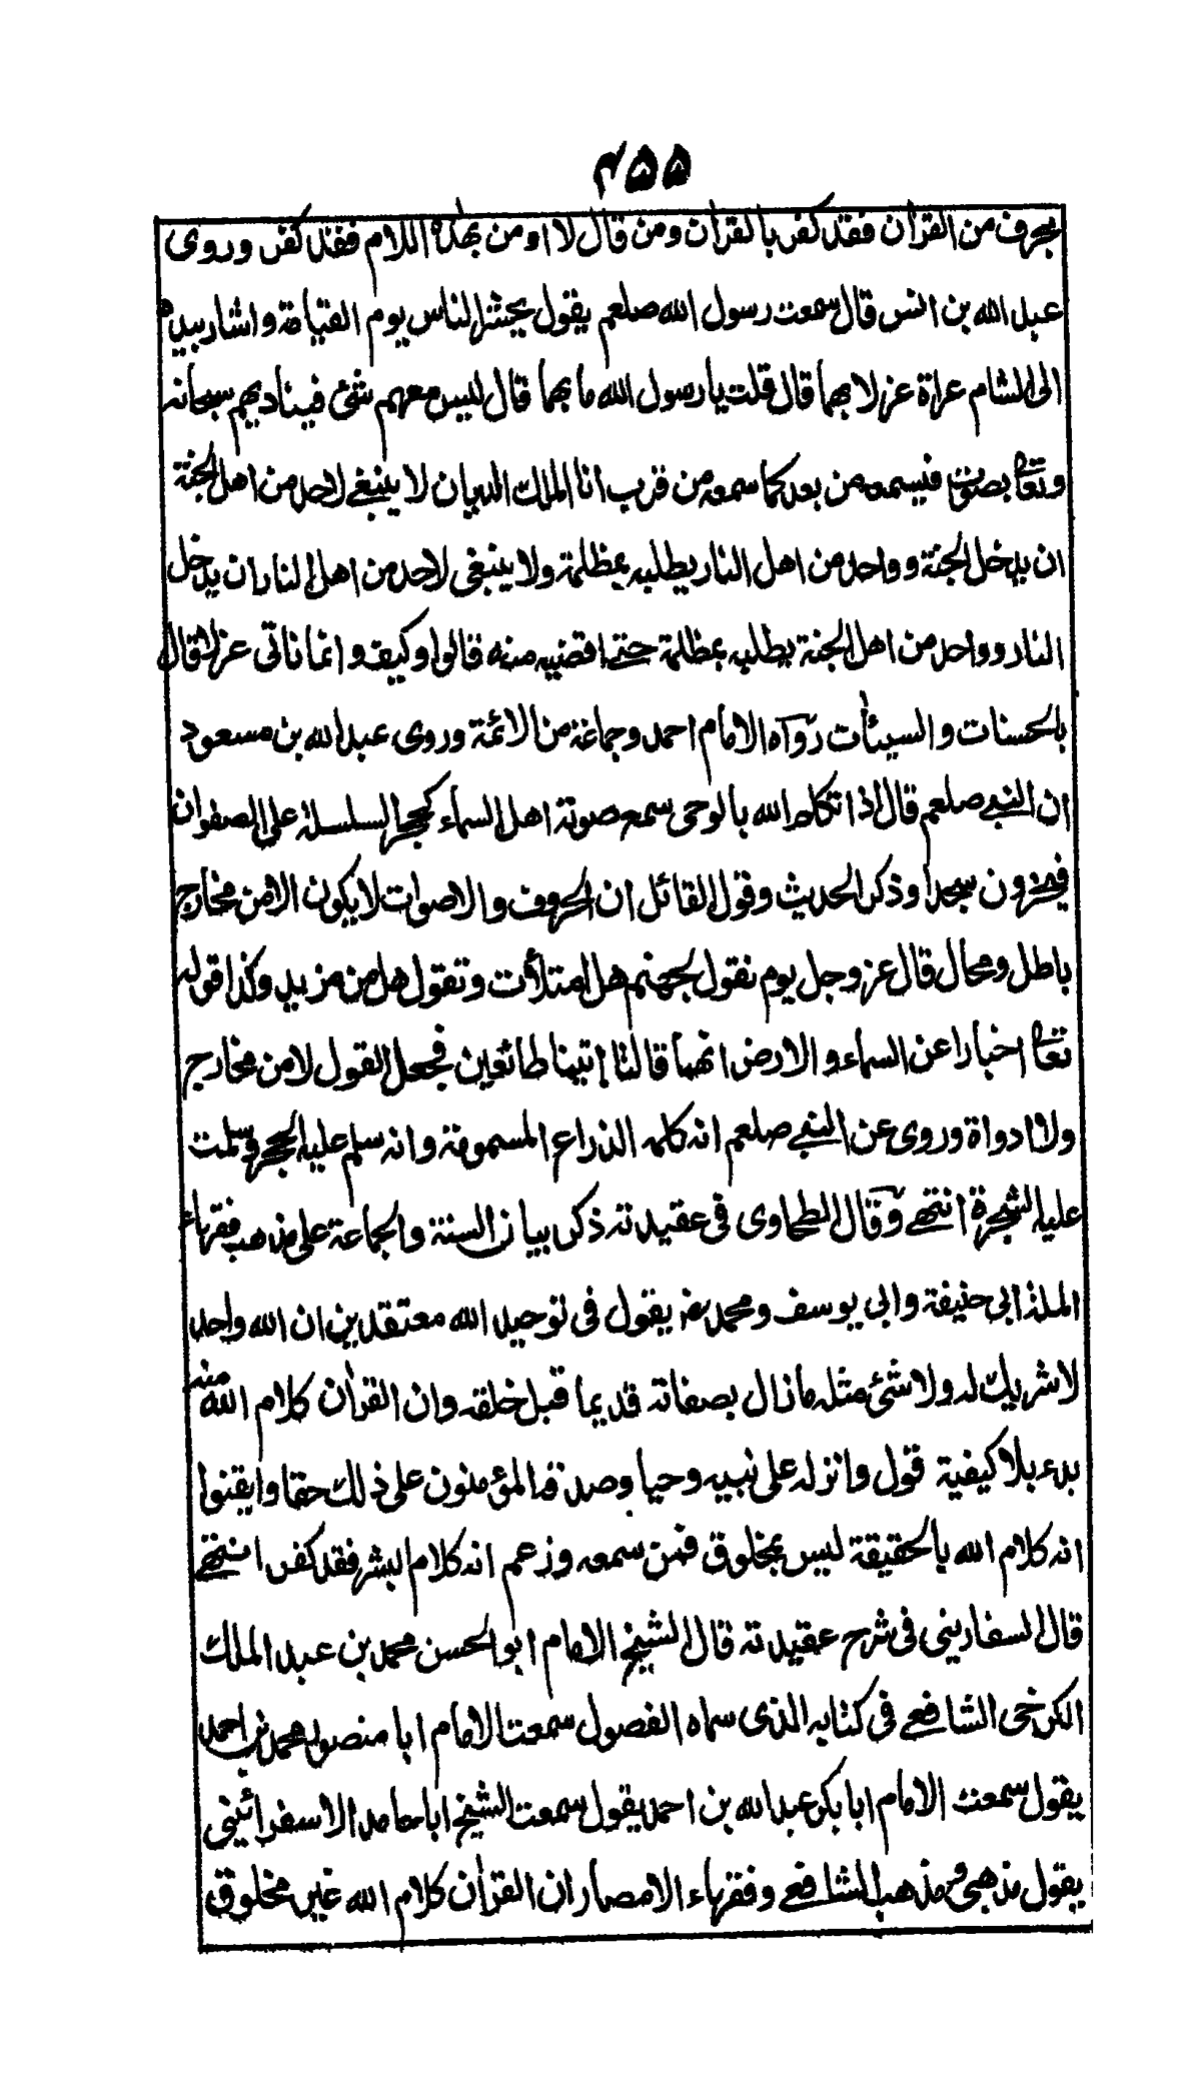 ۴۵۵
بحرف من القرآن فقد كفر بالقرآن ومن قال لا اومن بهذه اللام فقد كفر وروى
عبد الله بن انس قال سمعت رسول الله صلعم يقول يحشر الناس يوم القيامة واشار بيده
الى الشام عراة عزلا بهما قال قلت يا رسول الله ما بهما قال ليس معهم شئ فيناديهم سبحانه
وتعا بصوت فيسمعه من بعد كما سمعه من قرب انا الملك الديان لا ينبغے لاحد من اهل الجنة
ان يدخل الجنة وواحد من اهل النار يطلبه بمظلمة ولا ينبغى لاحد من اهل النار ان يدخل
النار وواحد من اهل الجنة يطلبه بمظلمة حتے اقضيه منه قالوا وكيف وانما ناتى عزلا قال
بالحسنات والسيئات رواه الامام احمد وجماعة من الائمة وروى عبد الله بن مسعود
ان النبے صلعم قال اذا تكلم الله بالوحى سمع صوته اهل السماء كجر السلسلة على الصفوان
فيخرون سجدا وذكر الحديث وقول القائل ان الحروف والاصوات لا يكون الا من مخارج
باطل ومحال قال عز وجل يوم نقول لجهنم هل امتلأت وتقول هل من مزيد وكذا قوله
تعا اخبارا عن السماء والارض انهما قالتا اتينا طائعين فجعل القول لا من مخارج
ولا ادواة وروى عن النبے صلعم انه كلمه الذراع المسمومة وانه سلم عليه الحجر وسلمت
عليه الشجرة انتهے وقال الطحاوى فى عقيدته ذكر بيان السنة والجماعة على مذهب فقهاء
الملة ابى حنيفة وابى يوسف ومحمد رض يقول فى توحيد الله معتقدين ان الله واحد
لا شريك له ولا شئ مثله مازال بصفاته قديما قبل خلقه وان القرآن كلام الله منه
بدء بلا كيفية قول وانزله على نبيه وحيا وصدقه المؤمنون على ذلك حقا وايقنوا
انه كلام الله بالحقيقة ليس بمخلوق فمن سمعه وزعم انه كلام البشر فقد كفر انتهے
قال السفارينى فى شرح عقيدته قال الشيخ الامام ابو الحسن محمد بن عبد الملك
الكرخى الشافعے فى كتابه الذى سماه الفصول سمعت الامام ابا منصور محمد بن احمد
يقول سمعت الامام ابا بكر عبد الله بن احمد يقول سمعت الشيخ ابا حامد الاسفرائينى
يقول مذهبى ومذهب الشافعے وفقهاء الامصار ان القرآن كلام الله غير مخلوق